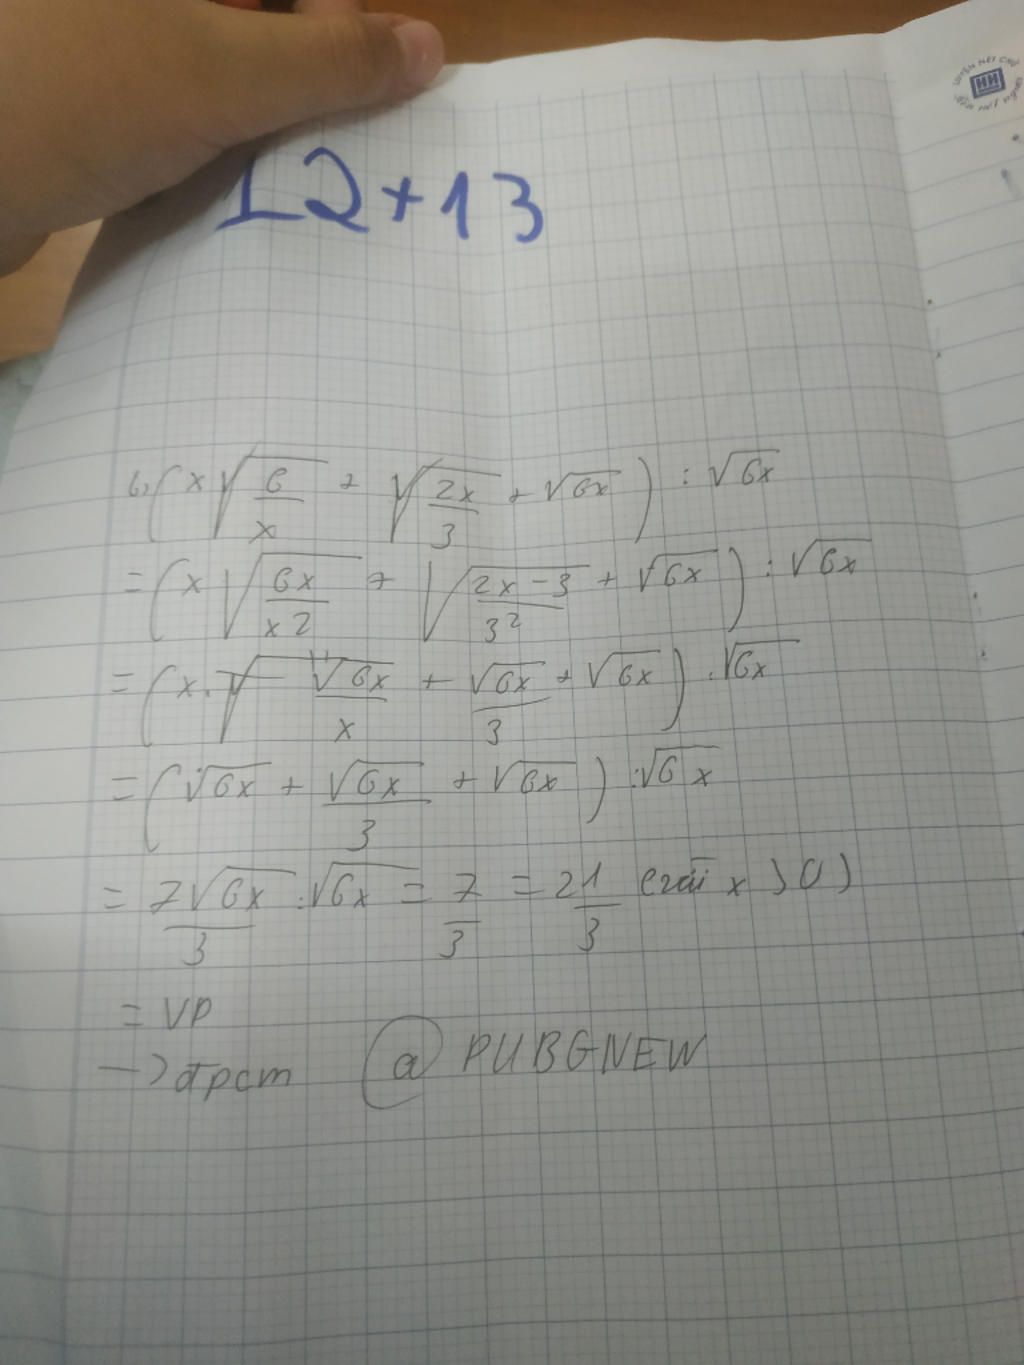 12+13
b, (x√(6/x) + √(2x/3) + √6x) : √6x
= (x√(6x/x2) + √(2x-3/3²) + √6x) : √6x
= (x. √6x/x + √6x/3 + √6x) : √6x
= (√6x + √6x/3 + √6x) : √6x
= 7√6x/3 : √6x = 7/3 = 2 1/3 x > 0)
= VP
-> đpcm @ PUBGNEW